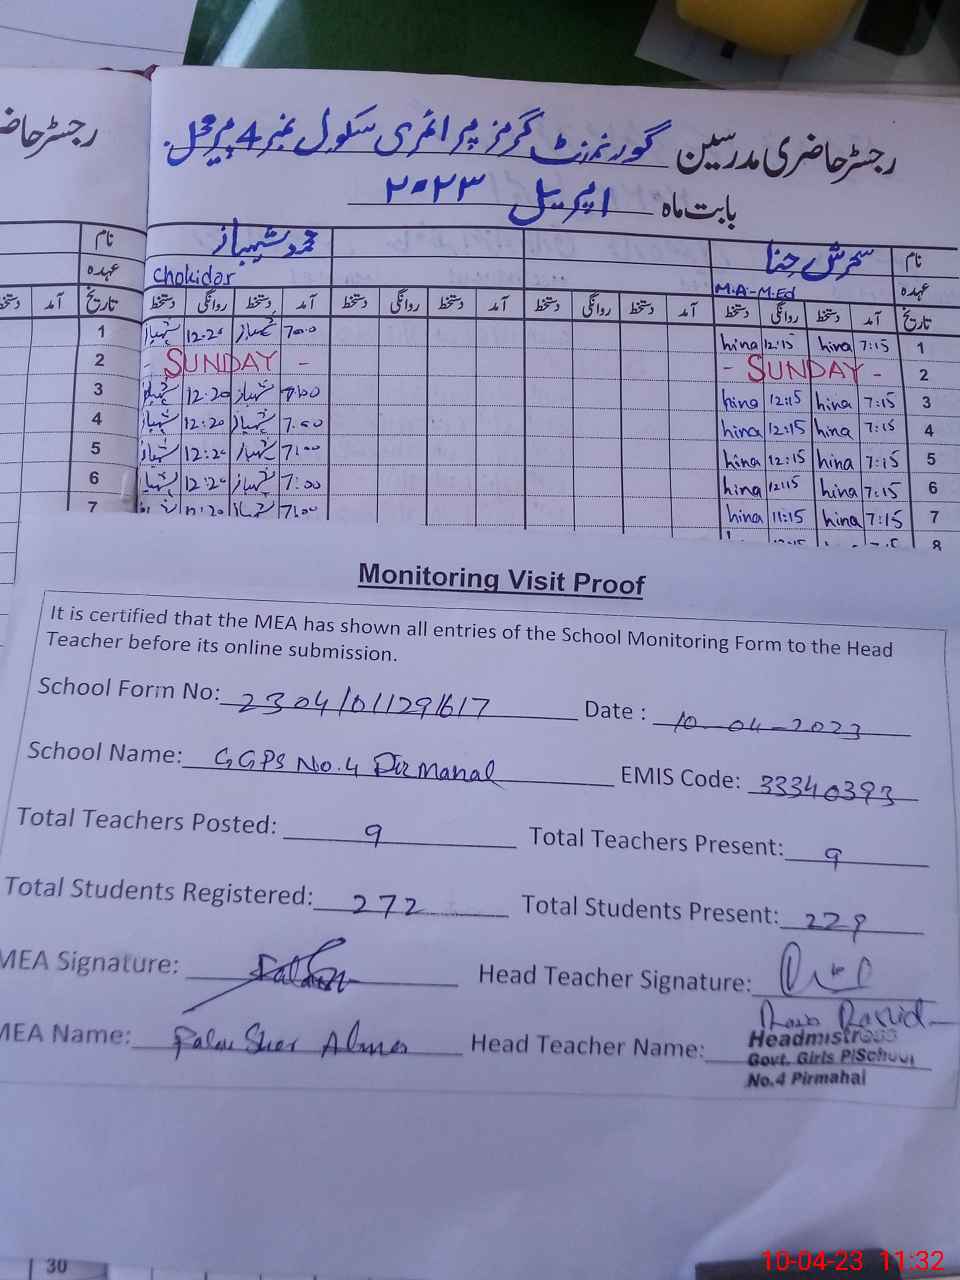 رجسٹر حاضری مدرسین گورنمنٹ گرلز پرائمری سکول نمبر 4 پیرمحل
رجسٹر حاضری
بابت ماہ اپریل ۲۰۲۳
نام سحرش حنا محمد شہباز نام
عہدہ M.A-M.Ed Chokidar عہدہ
تاریخ آمد دستخط روانگی دستخط آمد دستخط روانگی دستخط آمد دستخط روانگی دستخط آمد دستخط روانگی دستخط تاریخ آمد دستخط
1 7:15 hina 12:15 hina 7:00 شہباز 12:20 شہباز 1
2 - SUNDAY - - SUNDAY - 2
3 7:15 hina 12:15 hina 7:00 شہباز 12:20 شہباز 3
4 7:15 hina 12:15 hina 7:00 شہباز 12:20 شہباز 4
5 7:15 hina 12:15 hina 7:00 شہباز 12:20 شہباز 5
6 7:15 hina 12:15 hina 7:00 شہباز 12:20 شہباز 6
7 7:15 hina 11:15 hina 7:00 شہباز 11:20 7
8
Monitoring Visit Proof
It is certified that the MEA has shown all entries of the School Monitoring Form to the Head
Teacher before its online submission.
School Form No: 2304/01129/617 Date : 10-04-2023
School Name: GGPS No.4 Pir Mahal EMIS Code: 33340393
Total Teachers Posted: 9 Total Teachers Present: 9
Total Students Registered: 272 Total Students Present: 229
MEA Signature: Head Teacher Signature:
MEA Name: Head Teacher Name:
Headmistress
Govt. Girls P/School
No.4 Pirmahal
30
10-04-23 11:32